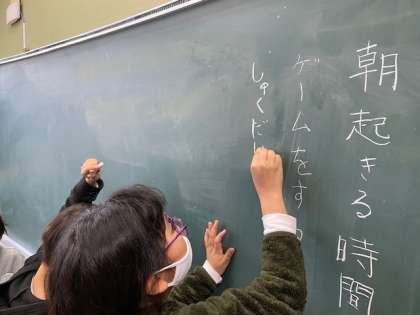 朝起きる時間
ゲームをす
しゅくだ